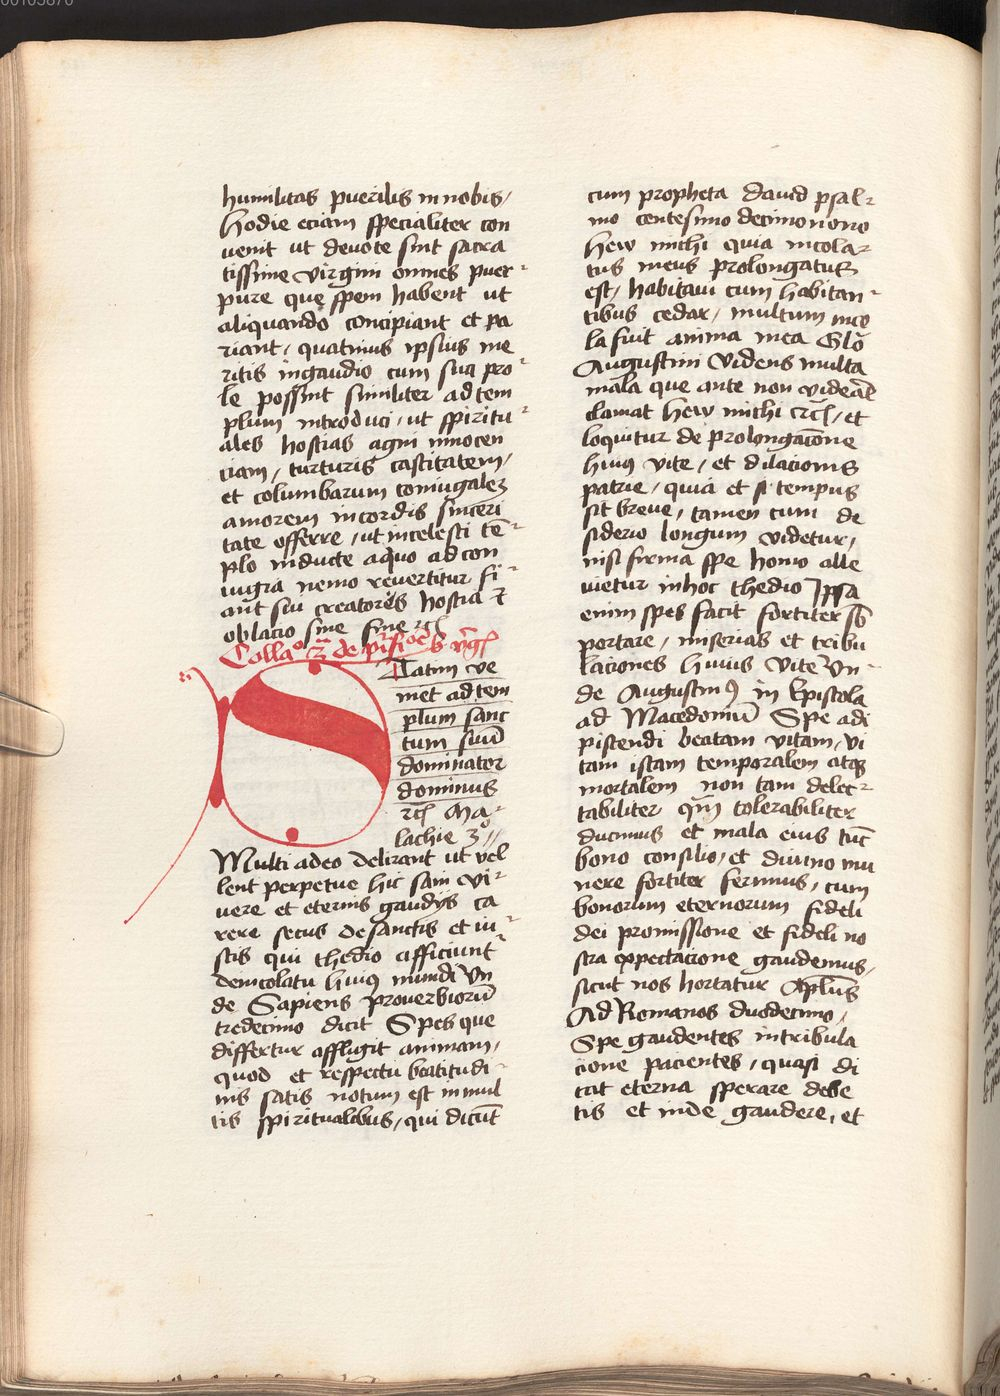 humilitas puerilis in nobis,
Hodie eciam specialiter con
uenit ut deuote sint sacra
tissime virgini omnes puer-
pure que spem habent ut
aliquando concipiant et pa
riant, quatinus ipsius me
ritis in gaudio cum sua pro-
le possint similiter ad tem
plum introduci, ut spiritu-
ales hostias agni innocen
ciam, turturis castitatem,
et columbarum coniugalez
amorem in cordis sinceri
tate offerre, ut in celesti tē-
plo inducte a quo ad con
iugia nemo reuertitur fi-
ant sui creatoris hostia ⁊
oblacio sine fine ⁊cꝭ
Collaᵒ 2ᵃ de p̄sᵉ̄tacōēs v̄gꝭ
Statim ve
niet ad tem
plum sanc
tum suū
dominator
dominus
⁊cꝭ Ma-
lachie 3ᵒ
Multi adeo delirant ut vel
lent perpetue hic sani vi-
uere et eternis gaudijs ca
rere secus de sanctis et iu-
stis qui thedio afficiunt̄
de incolatu huiꝯ mundi Vn
de Sapiens prouerbiorū
tredecimo dicit Spes que
differtur affligit animam,
quod et respectu beatitudi-
nis satis notum est in mul
tis spiritualibus, qui dicūt
cum propheta dauid psal-
mo centesimo decimo nono
Hew michi quia incola-
tus meus prolongatus
est, habitaui cum habitan-
tibus cedar, multum inco
la fuit anima mea Glō
Augustini Videns multa
mala que ante non videāt
clamat hew michi ⁊cꝭ, et
loquitur de prolongacōne
huiꝯ vite, et dilacionis
patrie, quia et si tempus
sit breue, tamen cum de
siderio longum videtur,
nisi firma spe homo alle
uietur in hoc thedio Ipsa
enim spes facit fortiter ss
portare, miserias et tribu
laciones huius vite Vn-
de Augustinꝯ in Epistola
ad Macedoniū Spe adi
piscendi beatam vitam, vi
tam istam temporalem atqꝫ
mortalem non tam delec-
tabiliter qm̄ tolerabiliter
ducimus et mala eius tūc
bono consilio, et diuino mu
nere fortiter ferimus, cum
bonorum eternorum fideli
dei promissione et fideli no
stra expectacione gaudemus,
sicut nos hortatur Apl̄us
Ad Romanos duodecimo,
Spe gaudentes in tribula
cione pacientes, quasi di
cat eterna sperare debe
tis et inde gaudere, et